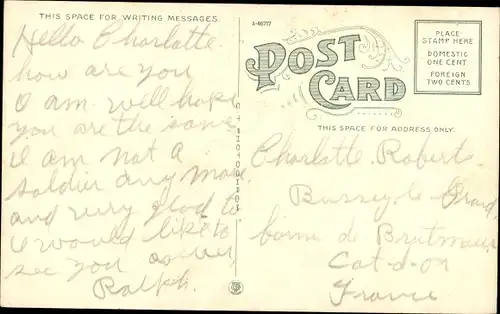 THIS SPACE FOR WRITING MESSAGES.
Hello Charlotte
how are you
I am well hope
you are the same
I am not a
soldier any more
and very glad to
I would like to
see you
Ralph.
A-46777
POST CARD
PLACE
STAMP HERE
DOMESTIC
ONE CENT
FOREIGN
TWO CENTS
THIS SPACE FOR ADDRESS ONLY.
Charlotte Roberts
Bussey le Grand
de
Cot-d-or
France